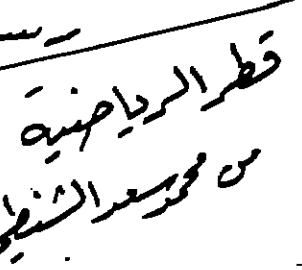 قطر الرياضية
من محمد سعد الشنطي